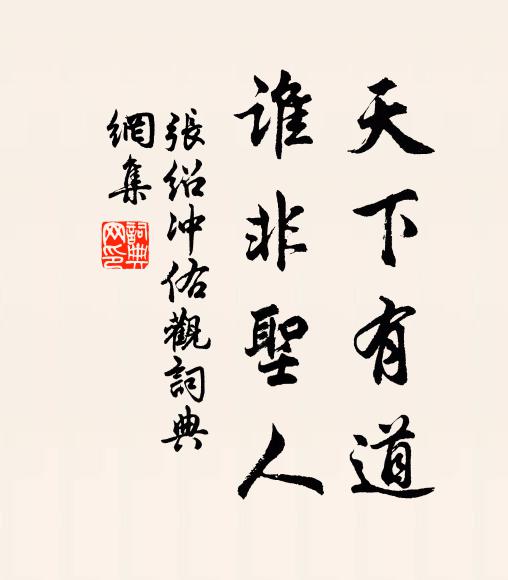 天下有道
誰非聖人
張紹冲佑觀詞典
網集
詞典
网印